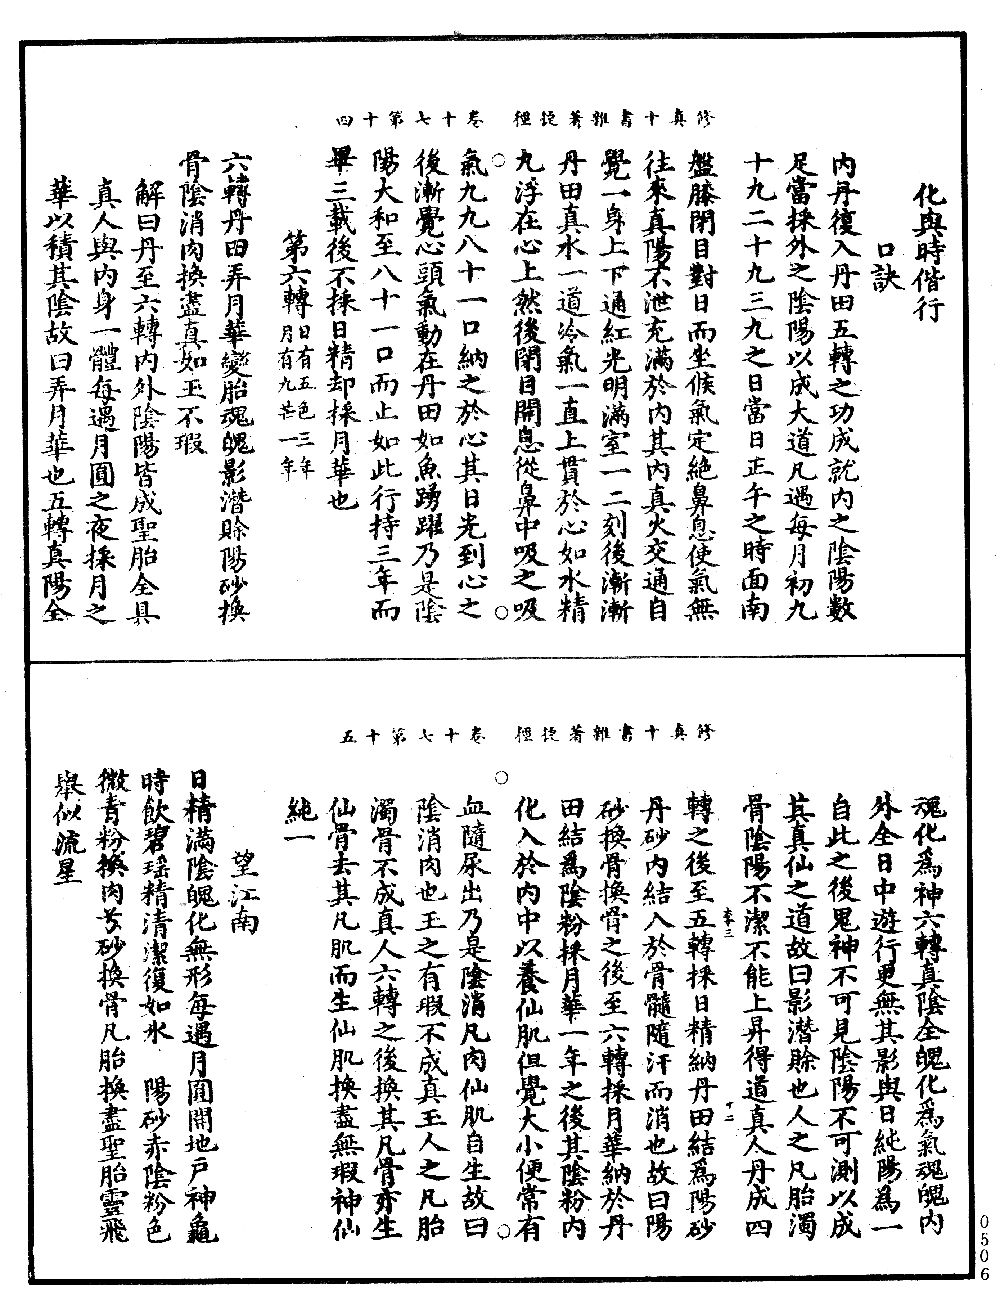 修真十書雜著捷徑　卷十七第十四
化與時偕行
口訣
內丹復入丹田五轉之功成就內之陰陽數
足當採外之陰陽以成大道凡遇每月初九
十九二十九三九之日當日正午之時面南
盤膝閉目對日而坐候氣定絕鼻息使氣無
往來真陽不泄充滿於內其內真火交通自
覺一身上下通紅光明滿室一二刻後漸漸
丹田真水一道冷氣一直上貫於心如水精
九浮在心上然後閉目開息從鼻中吸之吸
氣九九八十一口納之於心其日光到心之
後漸覺心頭氣動在丹田如魚踴躍乃是陰
陽大和至八十一口而止如此行持三年而
畢三載後不採日精却採月華也
第六轉日有五色三年月有九芒一年
六轉丹田弄月華變胎魂魄影潛賒陽砂換
骨陰消肉換盡真如玉不瑕
解曰丹至六轉內外陰陽皆成聖胎全具
真人與內身一體每遇月圓之夜採月之
華以積其陰故曰弄月華也五轉真陽全
修真十書雜著捷徑　卷十七第十五
魂化為神六轉真陰全魄化為氣魂魄內
外全日中遊行更無其影與日純陽為一
自此之後鬼神不可見陰陽不可測以成
其真仙之道故曰影潛賒也人之凡胎濁
骨陰陽不潔不能上昇得道真人丹成四
轉之後至五轉採日精納丹田結為陽砂
丹砂內結入於骨髓隨汗而消也故曰陽
砂換骨換骨之後至六轉採月華納於丹
田結為陰粉採月華一年之後其陰粉內
化入於內中以養仙肌但覺大小便常有
血隨尿出乃是陰消凡肉仙肌自生故曰
陰消肉也玉之有瑕不成真玉人之凡胎
濁骨不成真人六轉之後換其凡骨亦生
仙骨去其凡肌而生仙肌換盡無瑕神仙
純一
望江南
日精滿陰魄化無形每遇月圓開地戶神龜
時飲碧瑤精清潔復如氷　陽砂赤陰粉色
微青粉換肉兮砂換骨凡胎換盡聖胎靈飛
舉似流星
十二
0506